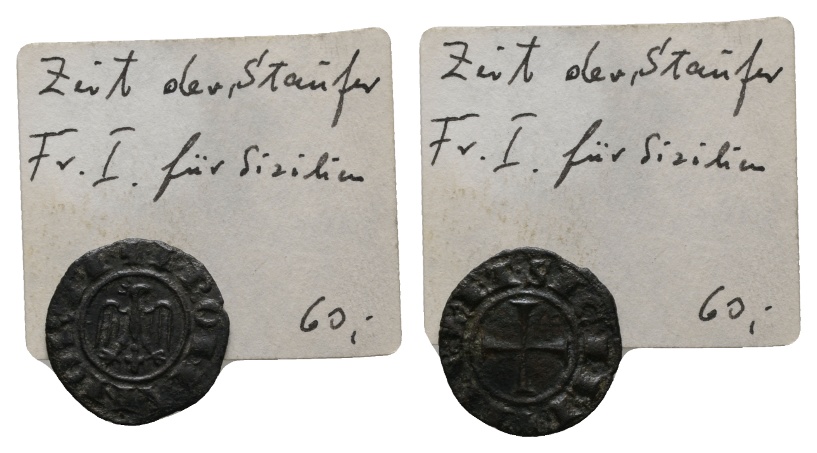 Zeit der Staufer
Fr. I. für Sizilien
60,-
Zeit der Staufer
Fr. I. für Sizilien
60,-